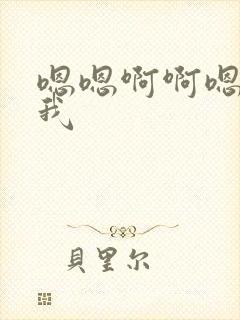 嗯嗯啊啊嗯
我
貝里尔